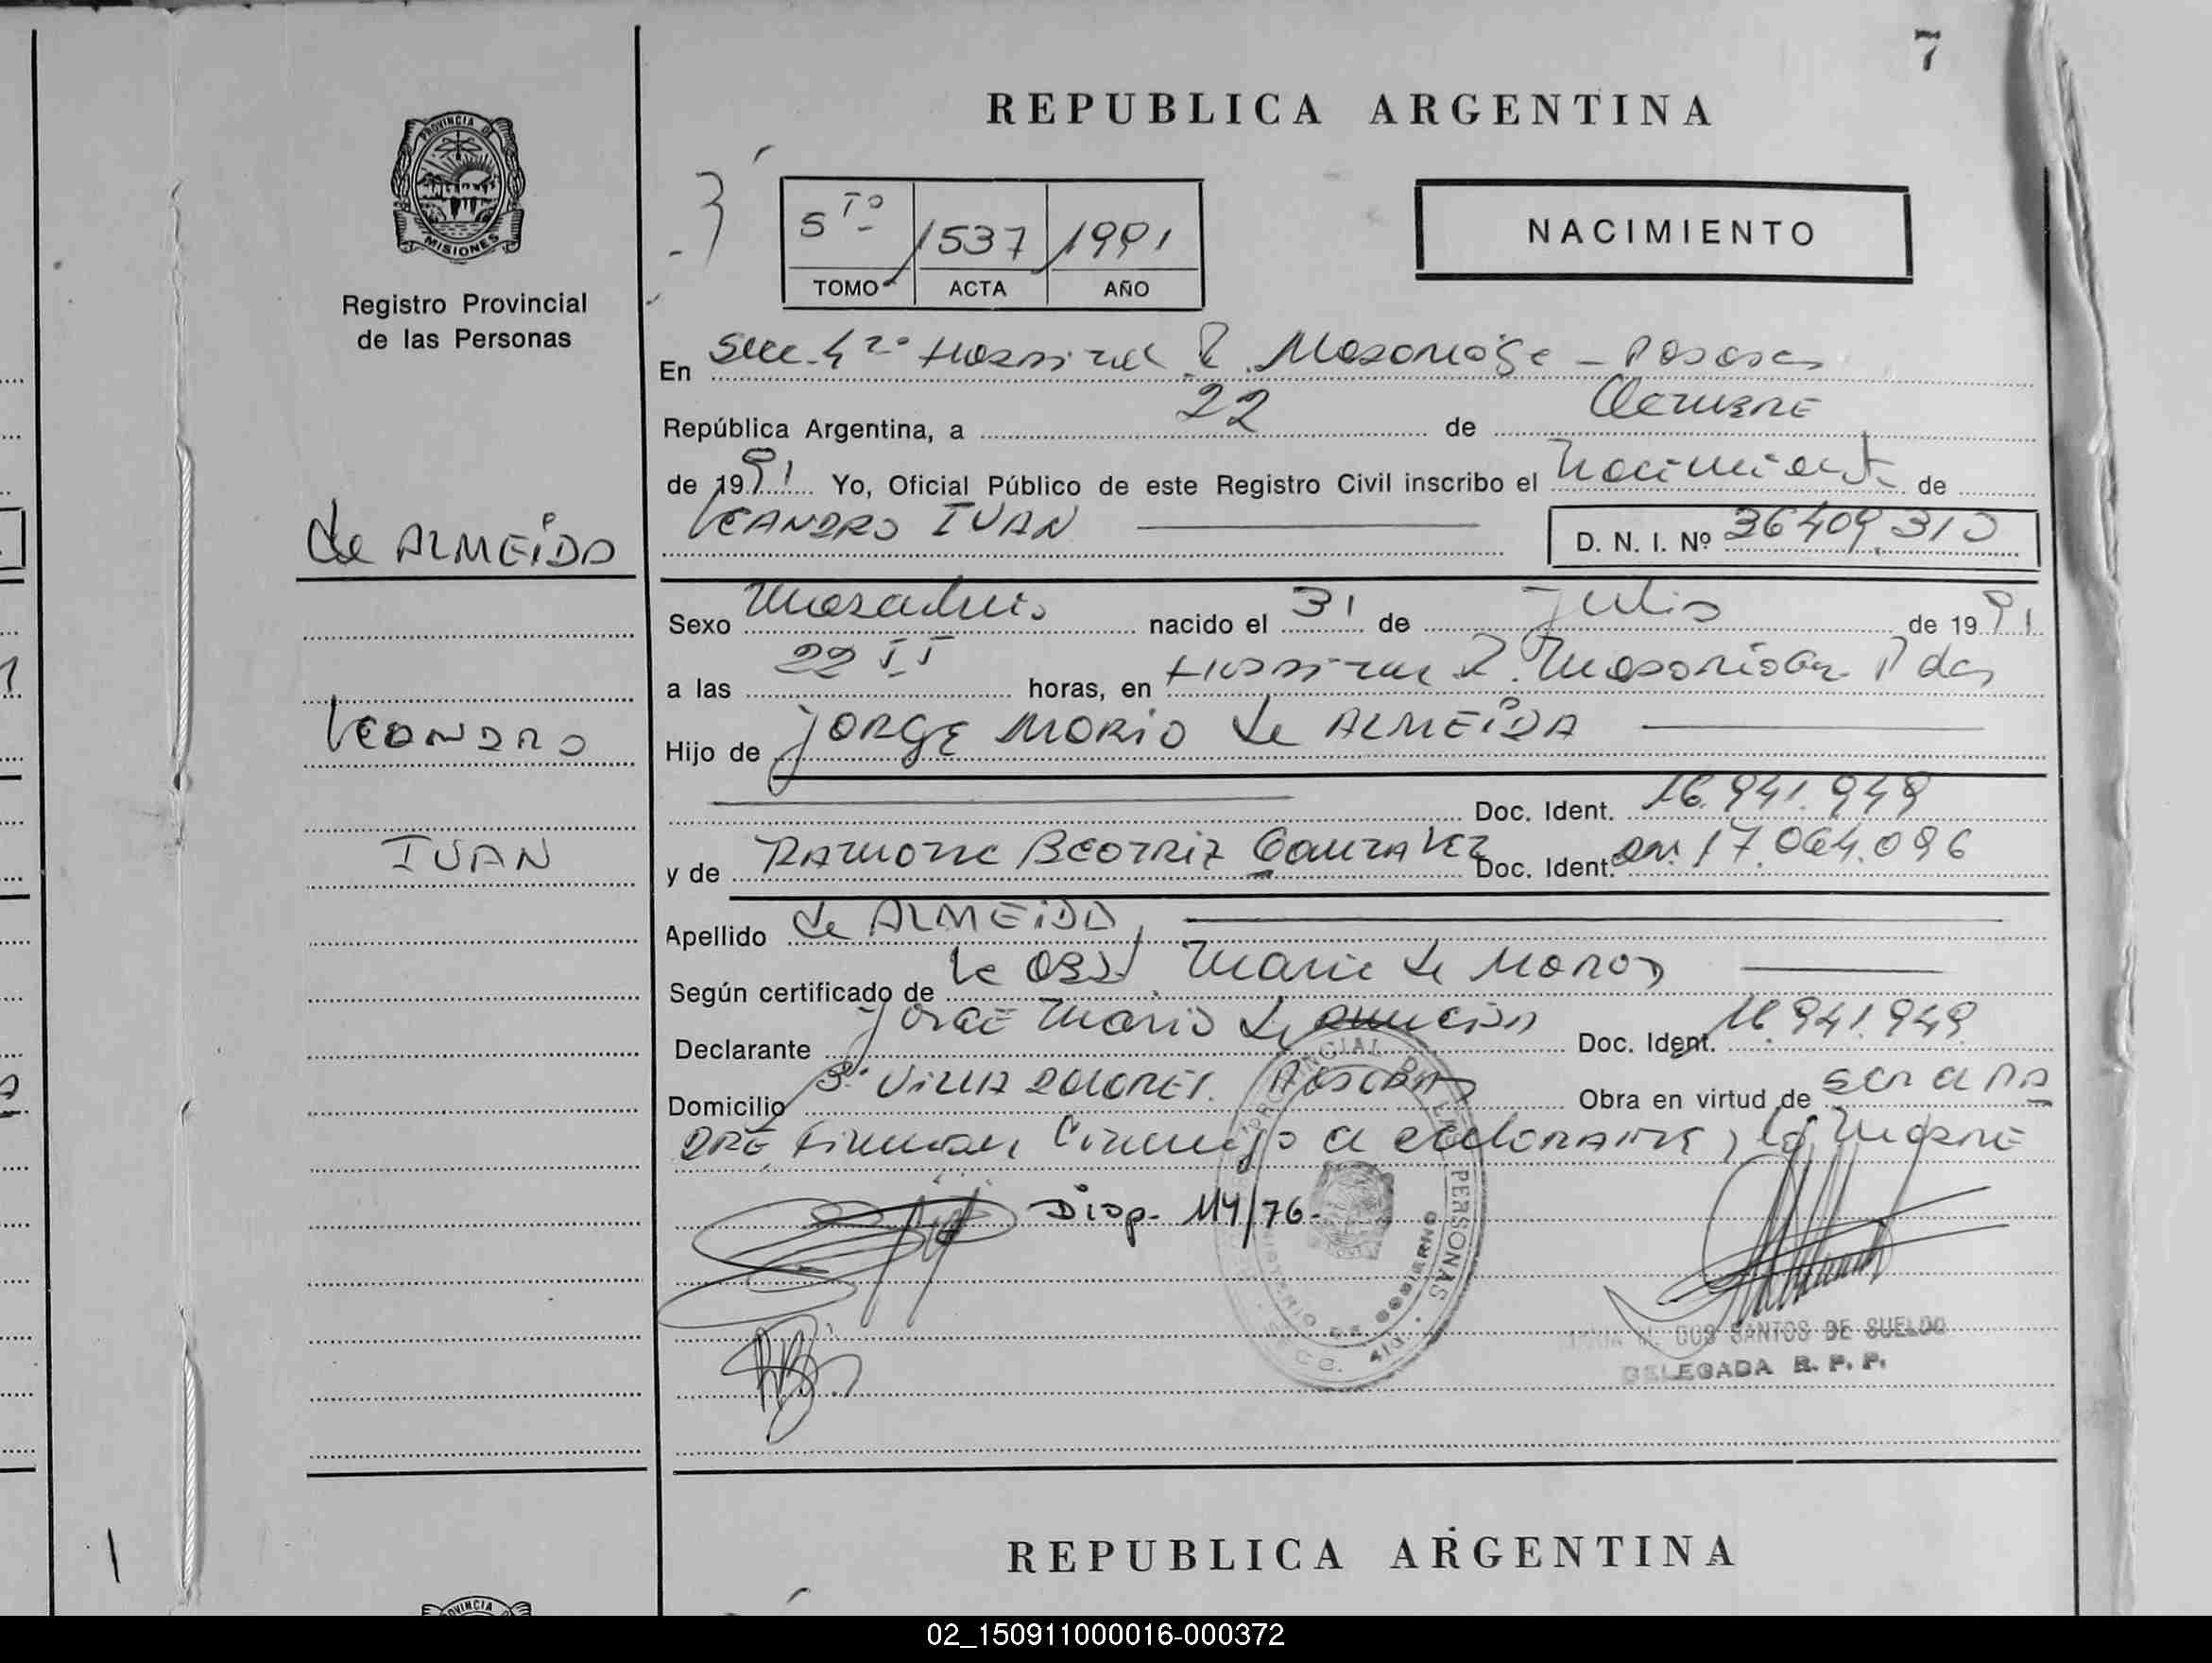 7
REPUBLICA ARGENTINA
PROVINCIA DE
MISIONES
Registro Provincial
de las Personas
3
5to 1537 1991
TOMO ACTA AÑO
NACIMIENTO
En Secc. 4ta Hospital R. Madariaga - Posadas
República Argentina, a 22 de Octubre
de 1991 Yo, Oficial Público de este Registro Civil inscribo el Nacimiento de
LEANDRO IVAN
D. N. I. Nº 36409.310
de ALMEIDA
LEANDRO
IVAN
Sexo Masculino nacido el 31 de Julio de 1991
a las 22 horas, en Hospital R. Madariaga Pdas
Hijo de JORGE MARIO de ALMEIDA
Doc. Ident. 16.941.949
y de RAMONA BEATRIZ GONZALEZ Doc. Ident. 17.064.096
Apellido de ALMEIDA
Según certificado de la Obst. Maria de
Declarante JORGE Mario de Almeida Doc. Ident. 16.941.949
Domicilio Bº VILLA DOLORES. POSADAS Obra en virtud de ser el PA
DRE, Firman conmigo el declarante y la MADRE
Disp. 114/76-
PROVINCIAL DE LAS PERSONAS
MINISTERIO DE GOBIERNO
SECC. 4TA.
DOS SANTOS DE SUELDO
DELEGADA R. P. P.
REPUBLICA ARGENTINA
PROVINCIA
02_150911000016-000372